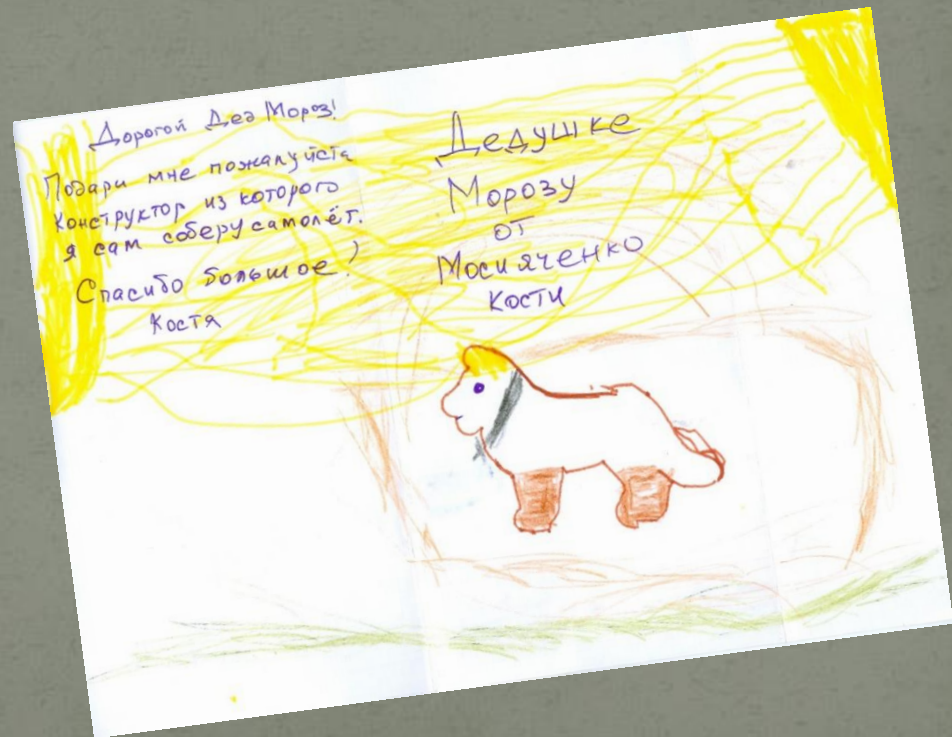 Дорогой Дед Мороз!
Подари мне пожалуйста
конструктор из которого
я сам соберу самолёт.
Спасибо большое!
Костя
Дедушке
Морозу
от
Мосияченко
Кости